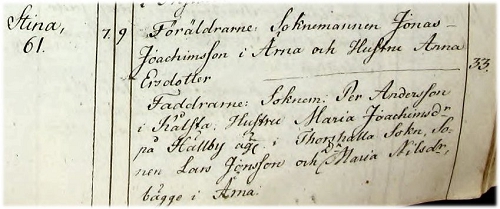 Stina,
61.
7. 9
Föräldrarne: Soknemannen Jonas
Joachimsson i Årna och Hustru Anna
Ersdotter
33.
Faddrarne: Soknem: Per Andersson
i Kälsta, Hustru Maria Joachimsdr
på Hällby äg: i Thorshälla Sokn, So-
nen Lars Jönsson och Maria Nilsdr,
bägge i Årna.